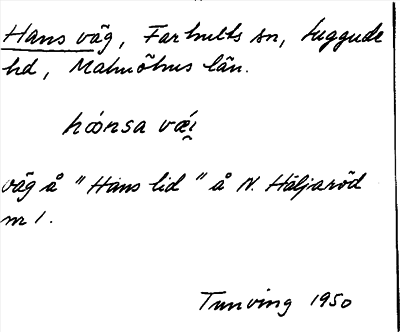 Hans väg, Farhults sn, Luggude
hd, Malmöhus län.
hónsa vǽi̯
väg å "Hans lid" å N. Häljaröd
nr 1.
Tunving 1950